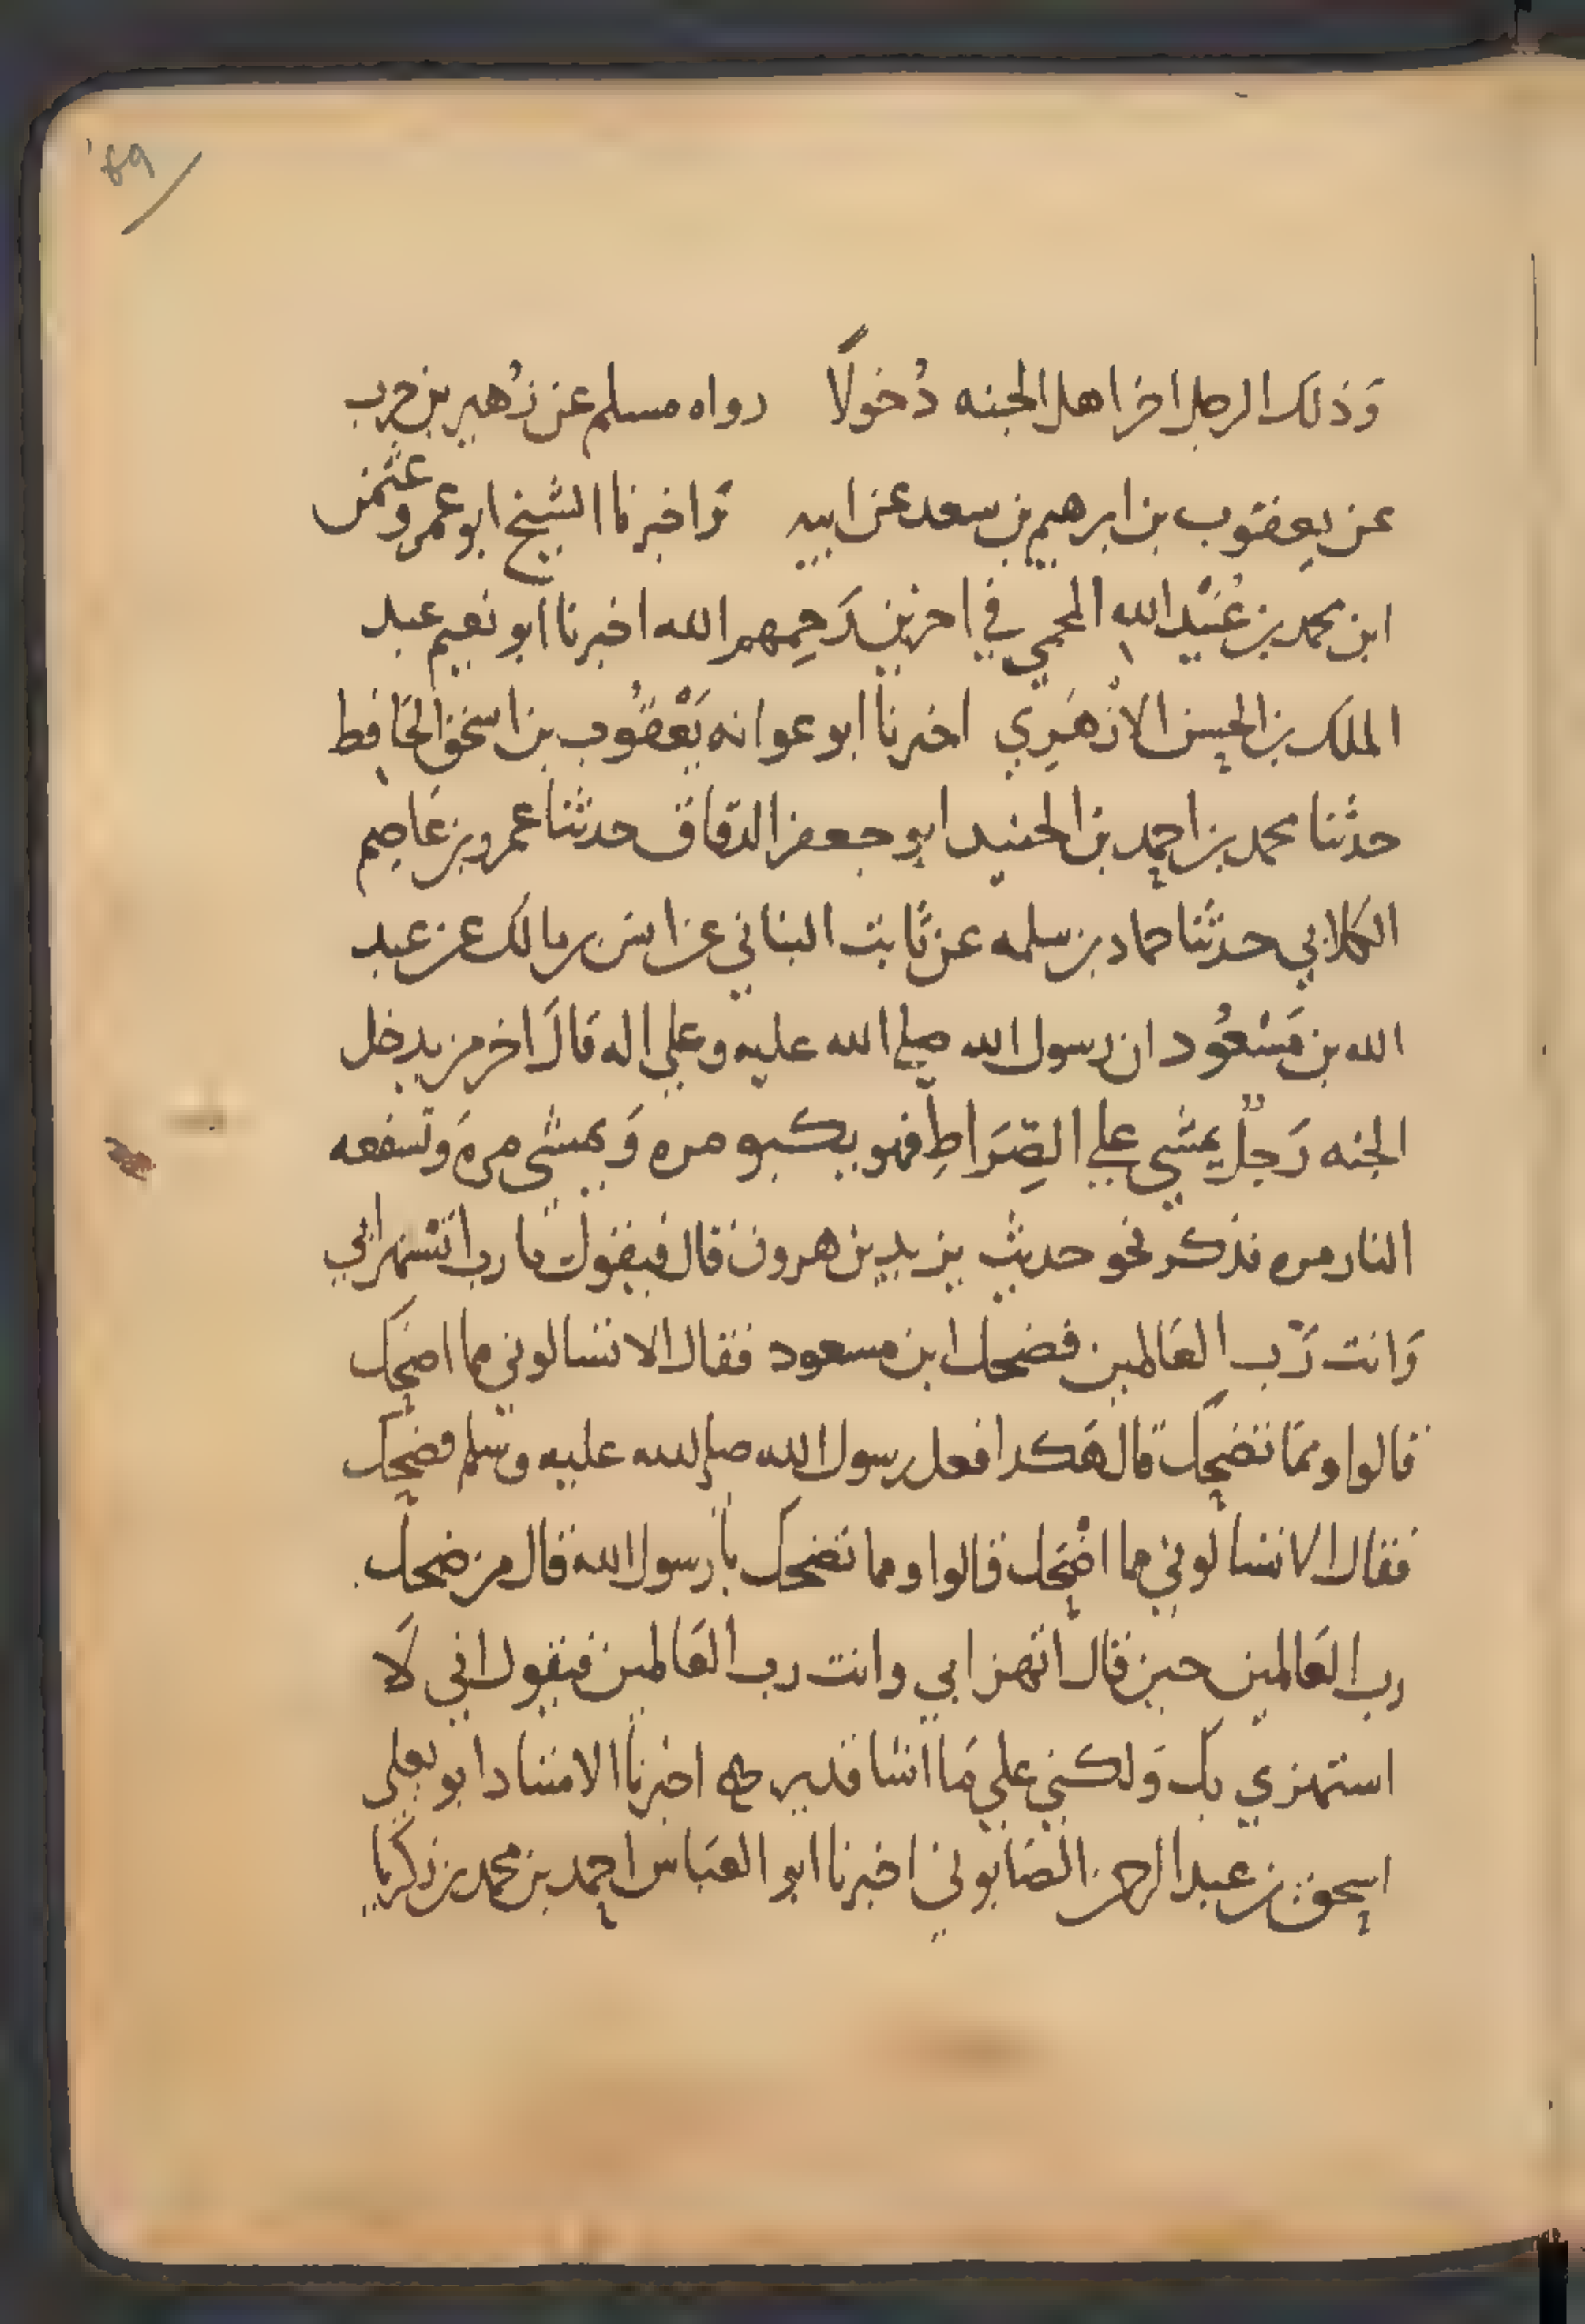 69
وَذلك الرجل اخر اهل الجنه دُخولًا رواه مسلم عن زُهير بن حرب
عن يعقوب بن ابرهيم بن سعد عن ابيه وَاخبرنا الشيخ ابو عمرو عثمن
ابن محمد بن عُبَيْد الله المحمي في اخرين رَحِمهم الله اخبرنا ابو نعيم عبد
الملك بن الحسن الازْهَرِي اخبرنا ابو عوانه يَعْقُوب بن اسحق الحَافظ
حدثنا محمد بن احمد بن الجنيد ابو جعفر الدقاق حدثنا عمرو بن عَاصِم
الكلابي حدثنا حماد بن سلمه عن ثَابت البناني عن انس بن مالك عن عبد
الله بن مَسْعُود ان رسول الله صلى الله عليه وعلى اله قالَ اخر من يدخل
الجنه رَجلٌ يمشي على الصِّرَاطِ فهو يكبو مره وَيمشي مرهَ وتسفعه
النار مره فذكر نحو حديث يزيد بن هرون قال فيقول يا رب اتَسْتهزابي
وَانت رَبّ العَالمين فضحك ابن مسعود فقال الا تسالوني مما اضحك
قالوا وممَا تضحك قال هَكدا فعل رسول الله صلى الله عليه وسلم فضحك
فقال الا تسالوني مما اضْحك قالوا ومما تضحك يا رسول الله قال من ضحك
رب العَالمين حين قال اتهزابي وانت رب العَالمين فيقول اني لَا
استهزي بك وَلكني علي مَا اشا قدير اخبرنا الاستاد ابو يعلى
اسحق بن عبد الرحمن الصَابوني اخبرنا ابو العبَاس احمد بن محمد بن زكَريا